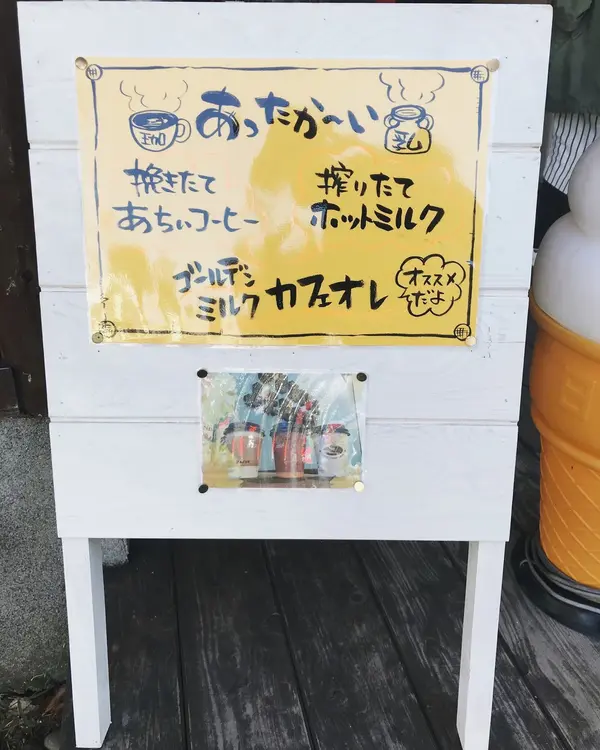 あったか〜い
乳
挽きたて
あちぃコーヒー
搾りたて
ホットミルク
ゴールデン
ミルク
カフェオレ
オススメ
だよ